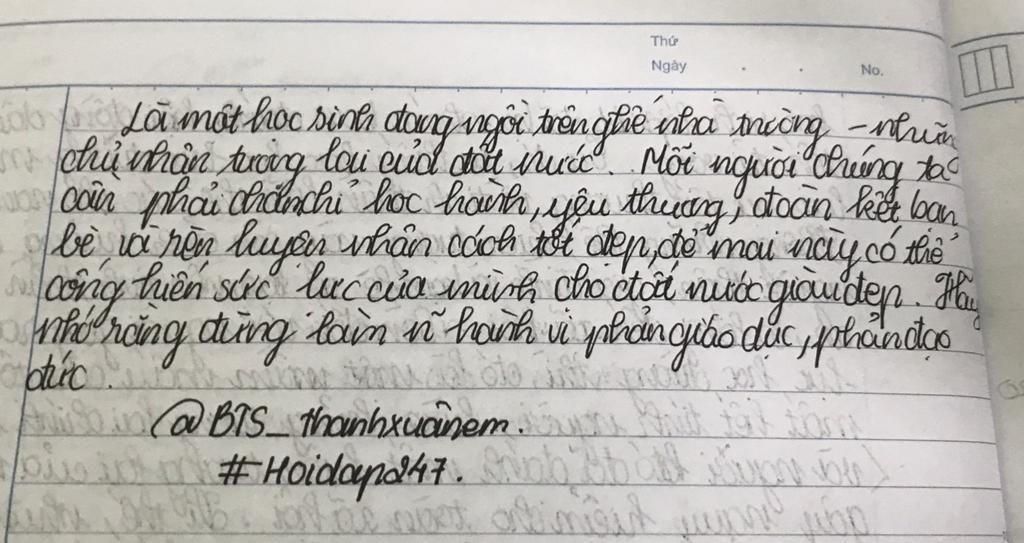 Thứ
Ngày . . No.
Là một học sinh đang ngồi trên ghế nhà trường – những
chủ nhân tương lai của đất nước. Mỗi người chúng ta
cần phải chăm chỉ học hành, yêu thương, đoàn kết bạn
bè và rèn luyện nhân cách tốt đẹp, để mai này có thể
cống hiến sức lực của mình cho đất nước giàu đẹp. Hãy
nhớ rằng đừng làm n~ hành vi phản giáo dục, phản đạo
đức.
@BTS_thanhxuânem.
#Hoidap247.